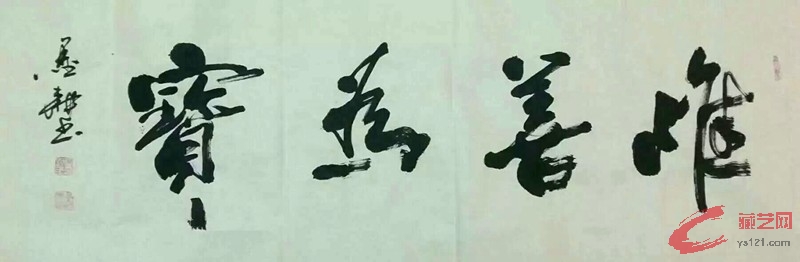 唯善為寶
墨耕书
藏艺网
ys121.com